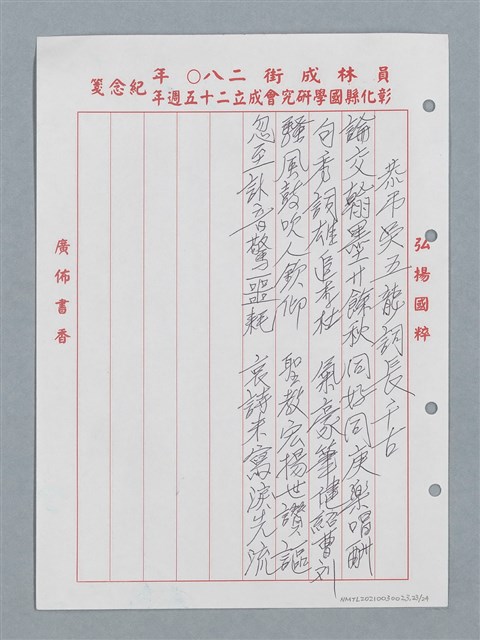 員林成街二八〇年
彰化縣國學研究會成立二十五週年紀念箋
弘揚國粹
恭弔吳五龍詞長千古
論交翰墨廿餘秋 同好同庚樂唱酬
句秀詞雄追李杜 氣豪筆健紹曹刘
騷風鼓吹人欽仰 聖教宏揚世讚謳
忽至訃音驚噩耗 哀詩未寫淚先流
廣佈書香
NMTL20210030023.23/24